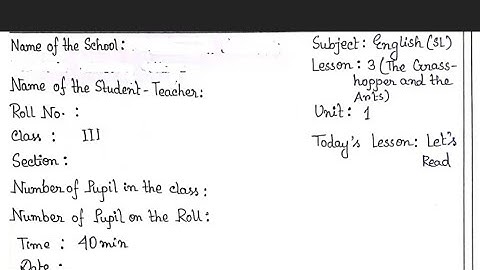 Name of the School:
Name of the Student-Teacher:
Roll No. :
Class : III
Section :
Number of Pupil in the class:
Number of Pupil on the Roll:
Time : 40 min
Date :
Subject: English (SL)
Lesson: 3 (The Grass-
hopper and the
Ants)
Unit: 1
Today's Lesson: Let's
Read